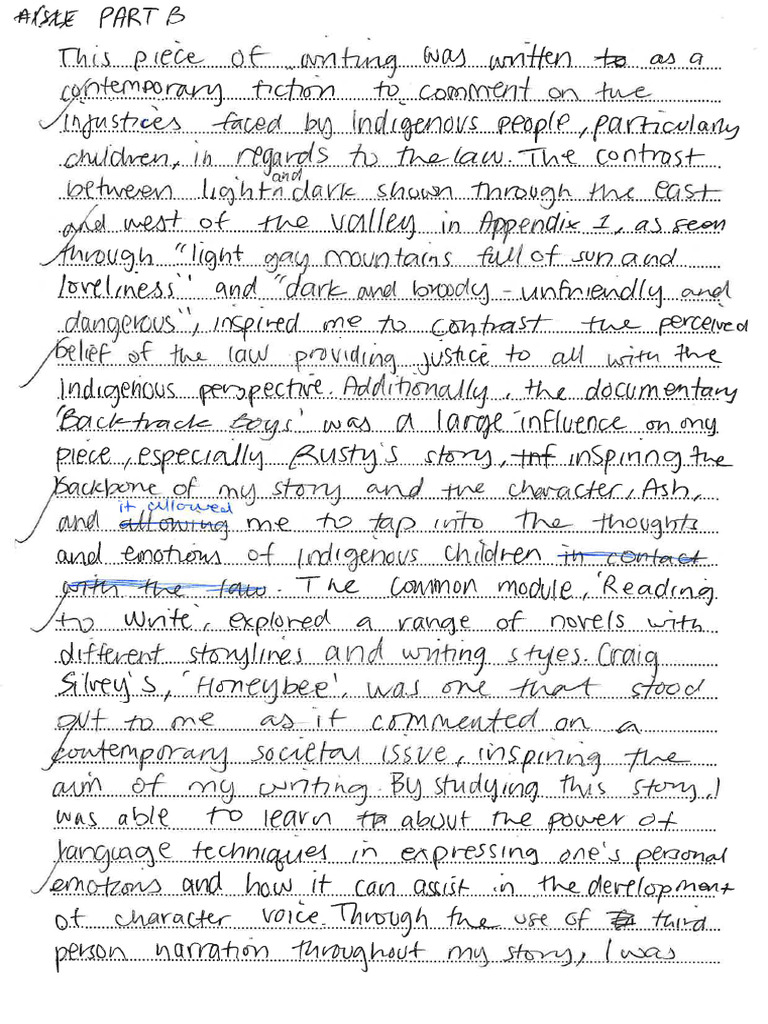 PART B
This piece of writing was written to as a
contemporary fiction to comment on the
injustices faced by Indigenous people, particularly
children, in regards to the law. The contrast
between light and dark shown through the east
and west of the valley in Appendix 1, as seen
through "light gay mountains full of sun and
loveliness" and "dark and broody - unfriendly and
dangerous", inspired me to contrast the perceived
belief of the law providing justice to all with the
Indigenous perspective. Additionally, the documentary
'Backtrack Boys' was a large influence on my
piece, especially Rusty's story, inspiring the
backbone of my story and the character, Ash,
and allowing it allowed me to tap into the thoughts
and emotions of Indigenous children in contact
with the law. The common module, 'Reading
to Write', explored a range of novels with
different storylines and writing styes. Craig
Silvey's, 'Honeybee', was one that stood
out to me as it commented on a
contemporary societal issue, inspiring the
aim of my writing. By studying this story, I
was able to learn about the power of
language techniques in expressing one's personal
emotions and how it can assist in the development
of character voice. Through the use of third
person narration throughout my story, I was